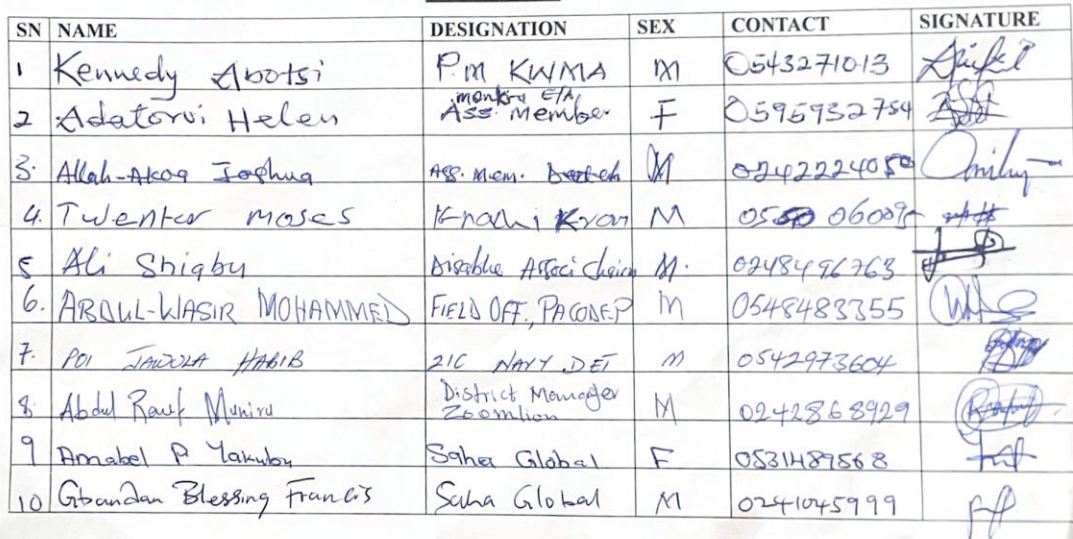 SN NAME DESIGNATION SEX CONTACT SIGNATURE
1 Kennedy Abotsi P.M KWMA M 0543271013
2 Adatorvi Helen Ass. Member F 0595932754
3. Allah-Akoq Joshua Ass. Mem. M 0242224050
4. Twenter moses Krachi M
5 Ali Shigbu Disable Associ M. 0248496763
6. ABDUL-WASIR MOHAMMED FIELD OFF., PACODEP M 0548483355
7. POI JAWULA HABIB 2IC NAVY DET M 0542973604
8. Abdul Rauf Muniru District Manager Zoomlion M 0242868929
9 Amabel P Yakubu Saha Global F 0531489568
10 Gbandan Blessing Francis Saha Global M 0241045999